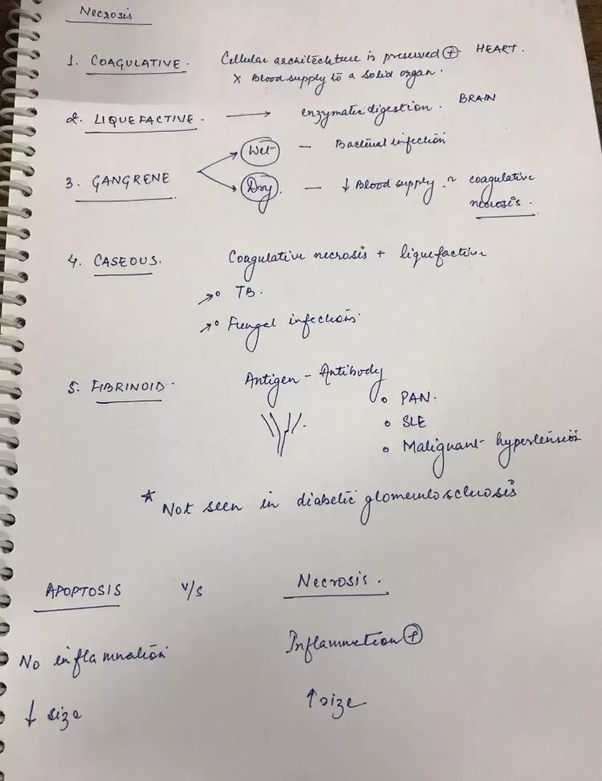 Necrosis
1. COAGULATIVE. Cellular architechture is preserved ⊕ HEART.
X Blood supply to a solid organ.
2. LIQUEFACTIVE. → enzymatic digestion. BRAIN
Wet — Bacterial infection
3. GANGRENE
Dry. — ↓ Blood supply ~ coagulative
necrosis.
4. CASEOUS. Coagulative necrosis + liquefactive
→ TB.
→ Fungal infections.
5. FIBRINOID. Antigen - Antibody
• PAN.
• SLE
• Malignant hypertension
* Not seen in diabetic glomerulosclerosis
APOPTOSIS v/s Necrosis.
No inflammation Inflammation ⊕
↓ size ↑ size